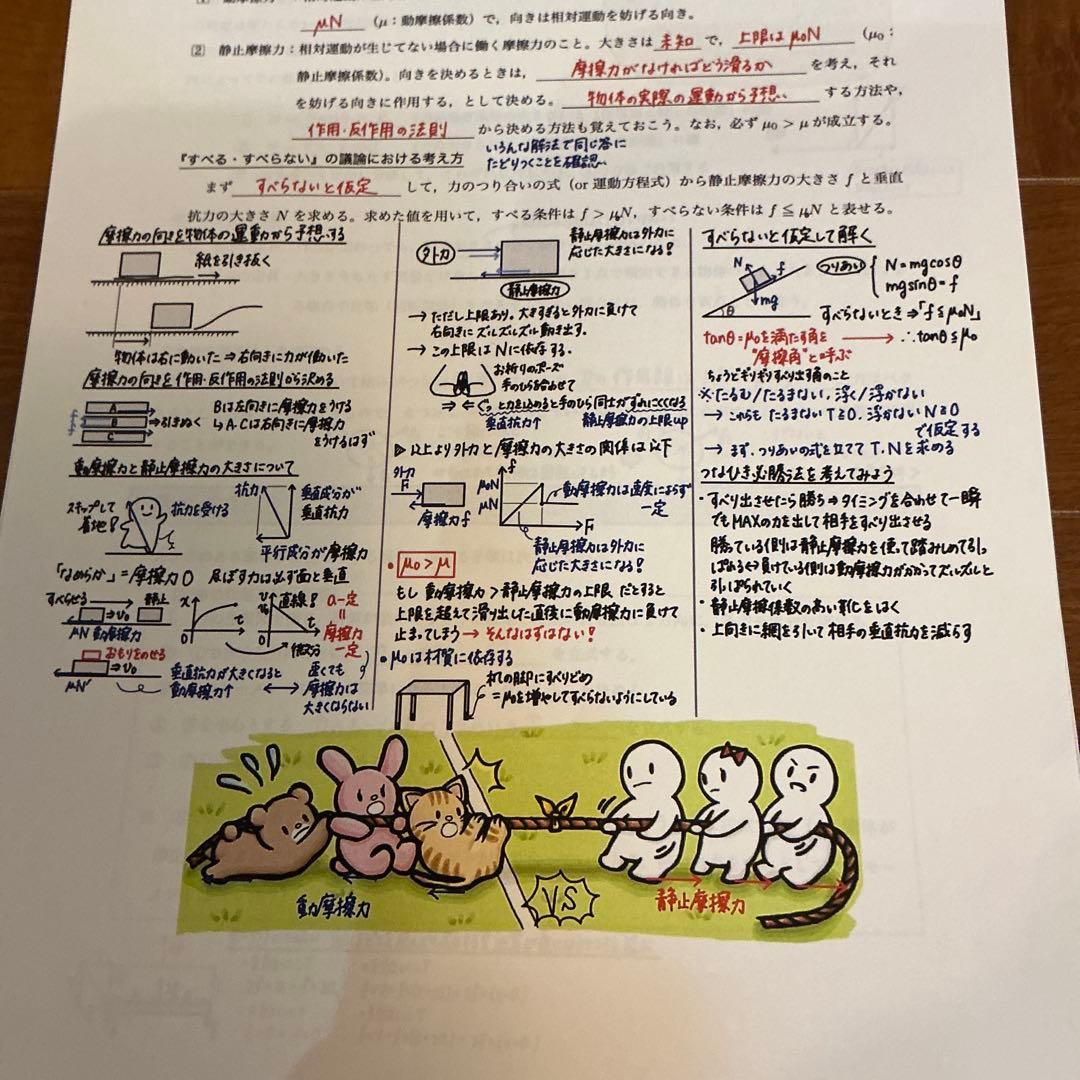 μN (μ:動摩擦係数)で,向きは相対運動を妨げる向き.
(2) 静止摩擦力:相対運動が生じてない場合に働く摩擦力のこと.大きさは 未知 で, 上限はμ₀N (μ₀:
静止摩擦係数).向きを決めるときは, 摩擦力がなければどう滑るか を考え,それ
を妨げる向きに作用する,として決める. 物体の実際の運動から予想、 する方法や,
作用・反作用の法則 から決める方法も覚えておこう.なお,必ず μ₀ > μ が成立する.
いろんな解法で同じ答に
たどりつくことを確認、
『すべる・すべらない』の議論における考え方
まず すべらないと仮定 して,力のつり合いの式(or 運動方程式)から静止摩擦力の大きさ f と垂直
抗力の大きさ N を求める.求めた値を用いて,すべる条件は f > μ₀N,すべらない条件は f ≦ μ₀N と表せる.
摩擦力の向きを物体の運動から予想する
紙を引き抜く
物体は右に動いた ⇒ 右向きに力が働いた
摩擦力の向きを作用・反作用の法則から決める
A
B
C
f
⇒引きぬく
Bは左向きに摩擦力をうける
↳A・Cは右向きに摩擦力
をうけるはず
動摩擦力と静止摩擦力の大きさについて
スキップして
着地!
抗力を受ける
抗力
垂直成分が
垂直抗力
平行成分が摩擦力
「なめらか」=摩擦力0 及ぼす力は必ず面と垂直
すべらせる
静止
⇒v₀
μN 動摩擦力
x
0
t
v
v₀
直線!
0
t
微分
a一定
=
摩擦力
一定
おもりをのせる
⇒v₀
μN'
垂直抗力が大きくなると
動摩擦力↑
速くても
摩擦力は
大きくならない
外力
静止摩擦力は外力に
応じた大きさになる!
静止摩擦力
→ ただし上限あり。大きすぎると外力に負けて
右向きにズルズルズル動き出す.
→ この上限はNに依存する.
お祈りのポーズ
手のひらを合わせて
⇒ ⇐ ぐっと力を込めると手のひら同士がずれにくくなる
垂直抗力↑ 静止摩擦力の上限up
▷ 以上より外力と摩擦力の大きさの関係は以下
外力
F
摩擦力f
f
μ₀N
μN
F
動摩擦力は速度によらず
一定
静止摩擦力は外力に
応じた大きさになる!
• μ₀>μ
もし 動摩擦力 > 静止摩擦力の上限 だとすると
上限を超えて滑り出した直後に動摩擦力に負けて
止まってしまう → そんなはずはない!
• μ₀は材質に依存する
机の脚にすべりどめ
=μ₀を増やしてすべらないようにしている
すべらないと仮定して解く
N
f
mg
θ
つりあい
N=mgcosθ
mgsinθ=f
すべらないとき⇒「f≦μ₀N」
tanθ=μ₀を満たす角を
"摩擦角"と呼ぶ
∴tanθ≦μ₀
ちょうどギリギリすべり出す角のこと
※たるむ/たるまない、浮く/浮かない
→ これらも たるまない T≧0、浮かない N≧0
で仮定する
→ まず、つりあいの式を立てて T、Nを求める
つなひき必勝法を考えてみよう
• すべり出させたら勝ち⇒タイミングを合わせて一瞬
でもMAXの力を出して相手をすべり出させる
勝っている側は静止摩擦力を使って踏みしめて引っ
ぱれる⇔負けている側は動摩擦力がかかってズルズルと
引っぱられていく
• 静止摩擦係数の高い靴をはく
• 上向きに綱を引いて相手の垂直抗力を減らす
動摩擦力
VS
静止摩擦力